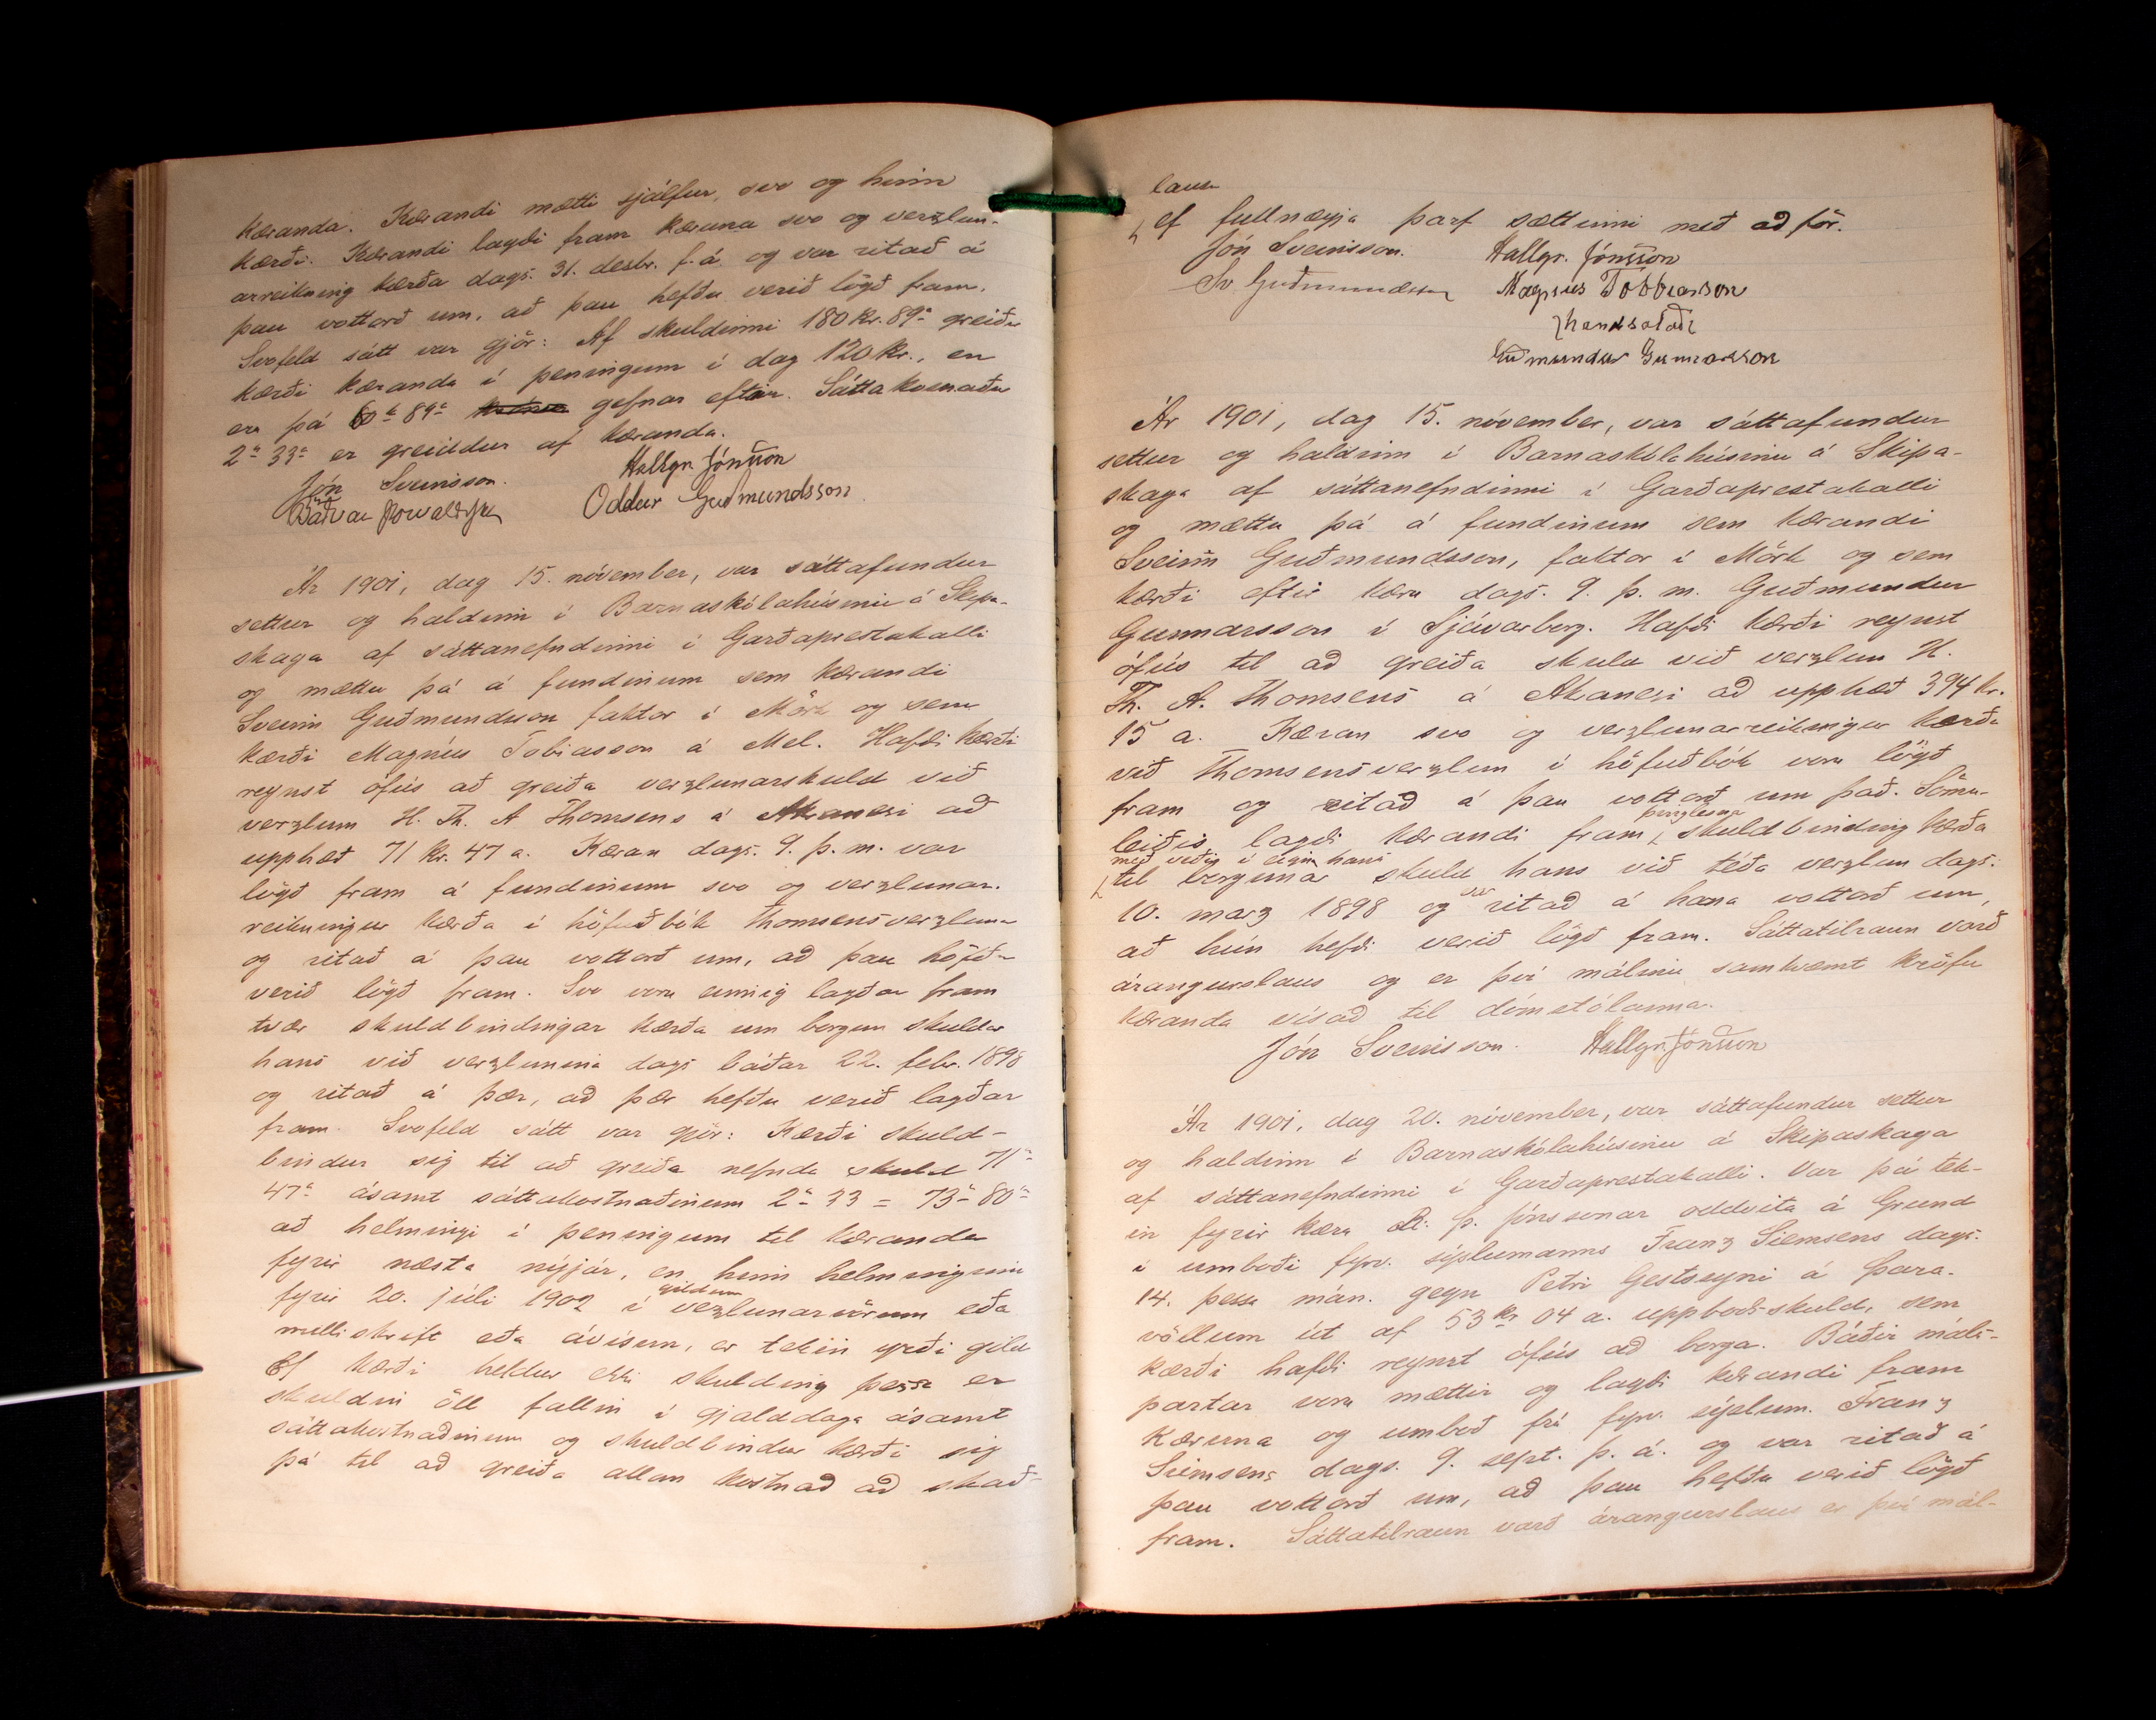 kæranda. Kærandi mætti sjálfur, svo og hinn
kærði. Kærandi lagði fram kæruna svo og verzlun-
arreikning kærða dags. 31. desbr. f. á. og var ritað á
þau vottorð um, að þau hefðu verið lögð fram.
Svofeld sátt var gjör: Af skuldinni 180 kr. 89 a greiðir
kærði kæranda í peningum í dag 120 kr., en
eru þá 60 k 89 a gefnar eftir. Sáttakosnaður
2 kr 33 a er greiddur af kæranda.
Jón Sveinsson. Hallgr. Jónsson
Oddur Guðmundsson
Ár 1901, dag 15. nóvember, var sáttafundur
settur og haldinn í Barnaskólahúsinu á Skipa-
skaga af sáttanefndinni í Garðaprestakalli
og mættu þá á fundinum sem kærandi
Sveinn Guðmundsson faktor í Mörk og sem
kærði Magnús Tobiasson á Mel. Hafði kærði
reynst ófús að greiða verzlunarskuld við
verzlum H. Th. A Thomsens á Akranesi að
upphæð 71 kr. 47 a. Kæran dags. 9. þ. m. var
lögð fram á fundinum svo og verzlunar-
reikningur kærða í höfuðbók Thomsensverzlunar
og ritað á þau vottorð um, að þau höfðu
verið lögð fram. Svo voru einnig lagðar fram
tvær skuldbindingar kærða um borgun skuldar
hans við verzlunina dags báðar 22. febr. 1898
og ritað á þær, að þær hefðu verið lagðar
fram. Svofeld sátt var gjör: Kærði skuld-
bindur sig til að greiða nefnda skuld 71 kr
47 a ásamt sáttakostnaðinum 2 kr 33 = 73 kr 80 a
að helmingi í peningum til kæranda
fyrir næsta nýjár, en hinn helminginn
fyrir 20. júli 1902 í gildum verzlunarvörum eða
milliskrift eða ávísun, er tekin yrði gild
Ef kærði heldur ekki skulding þessa er
skuldin öll fallin í gjalddaga ásamt
sáttakostnaðinum og skuldbindur kærði sig
þá til að greiða allan kostnað að skað-
laus
ef fullnægja þarf sættinni með aðför.
Jón Sveinsson. Hallgr. Jónsson
Sv Guðmundsson Magnús Tobbiasson
handsalað
Guðmundur Gunnarsson
Ár 1901, dag 15. nóvember, var sáttafundur
settur og haldinn í Barnaskólahúsinu á Skipa-
skaga af sáttanefndinni í Garðaprestakalli
og mættu þá á fundinum sem kærandi
Sveinn Guðmundsson, faktor í Mörk og sem
kærði eftir kæru dags. 9. þ. m. Guðmundur
Gunnarsson í Sjávarborg. Hafði kærði reynst
ófús til að greiða skuld við verzlun H.
Th. A. Thomsens á Akranesi að upphæð 394 kr.
15 a. Kæran svo og verzlunarreikningur kærða
við Thomsensverzlun í höfuðbók voru lögð
fram og ritað á þau vottorð um það. Sömu-
leiðis lagði kærandi fram þinglesna skuldbinding kærða
með veði í eign hans
til borgunar skuld hans við téða verzlun dags.
10. marz 1898 og var ritað á hana vottorð um,
að hún hefði verið lögð fram. Sáttatilraun varð
árangurslaus og er því málinu samkvæmt kröfu
kæranda vísað til dómstólanna.
Jón Sveinsson. Hallgr. Jónsson
Ár 1901, dag 20. nóvember, var sáttafundur settur
og haldinn í Barnaskólahúsinu á Skipaskaga
af sáttanefndinni í Garðaprestakalli. Var þá tek-
in fyrir kæra R. Þ. Jónssonar oddvita á Grund
í umboði fyrv. sýslumanns Franz Siemsens dags.
14. þessa mán. gegn Petri Gestssyni á Þara-
völlum út af 53 kr 04 a. uppboðsskuld, sem
kærði hafði reynst ófús að borga. Báðir máls-
partar voru mættir og lagði kærandi fram
kæruna og umboð frá fyrv. sýslum. Franz
Siemsens dags. 9. sept. þ. á. og var ritað á
þau vottorð um, að þau hefðu verið lögð
fram. Sáttatilraun varð árangurslaus er því mál-